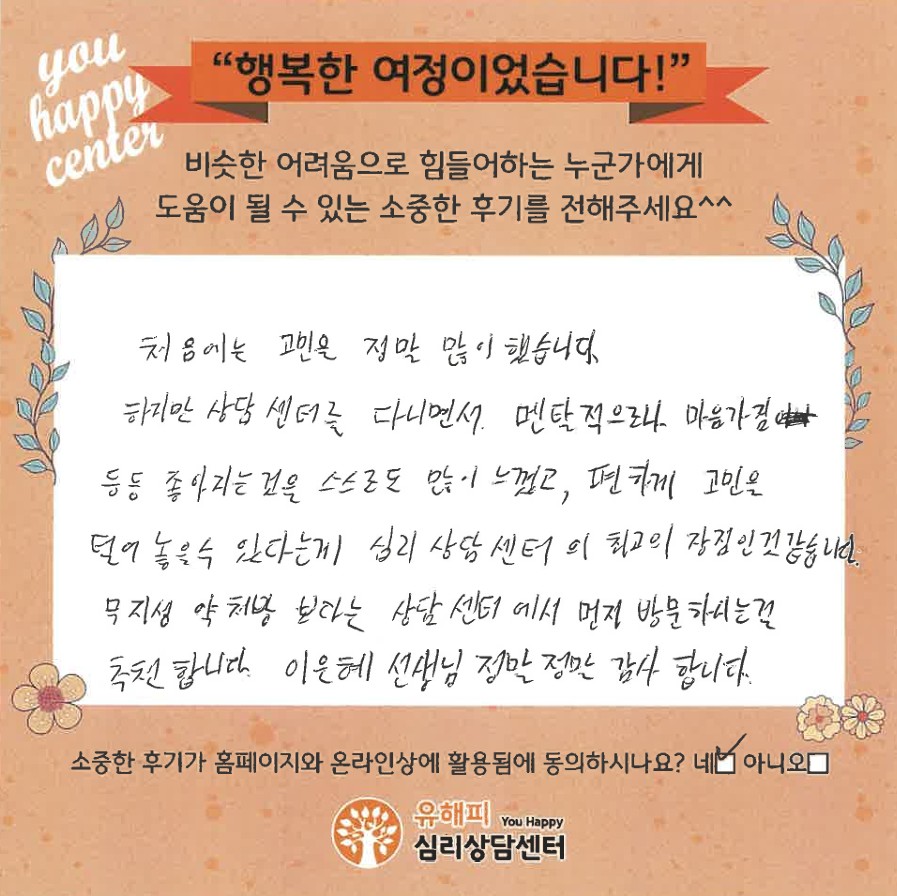 you
happy
center
“행복한 여정이었습니다!”
비슷한 어려움으로 힘들어하는 누군가에게
도움이 될 수 있는 소중한 후기를 전해주세요^^
처음에는 고민을 정말 많이 했습니다.
하지만 상담 센터를 다니면서. 멘탈적으로나 마음가짐
등등 좋아지는것을 스스로도 많이 느꼈고, 편하게 고민을
털어 놓을수 있다는게 심리 상담센터의 최고의 장점인것같습니다.
무지성 약처방 보다는 상담센터에서 먼저 방문하시는걸
추천 합니다. 이은혜 선생님 정말정말 감사 합니다.
소중한 후기가 홈페이지와 온라인상에 활용됨에 동의하시나요? 네 아니오
유해피 You Happy
심리상담센터